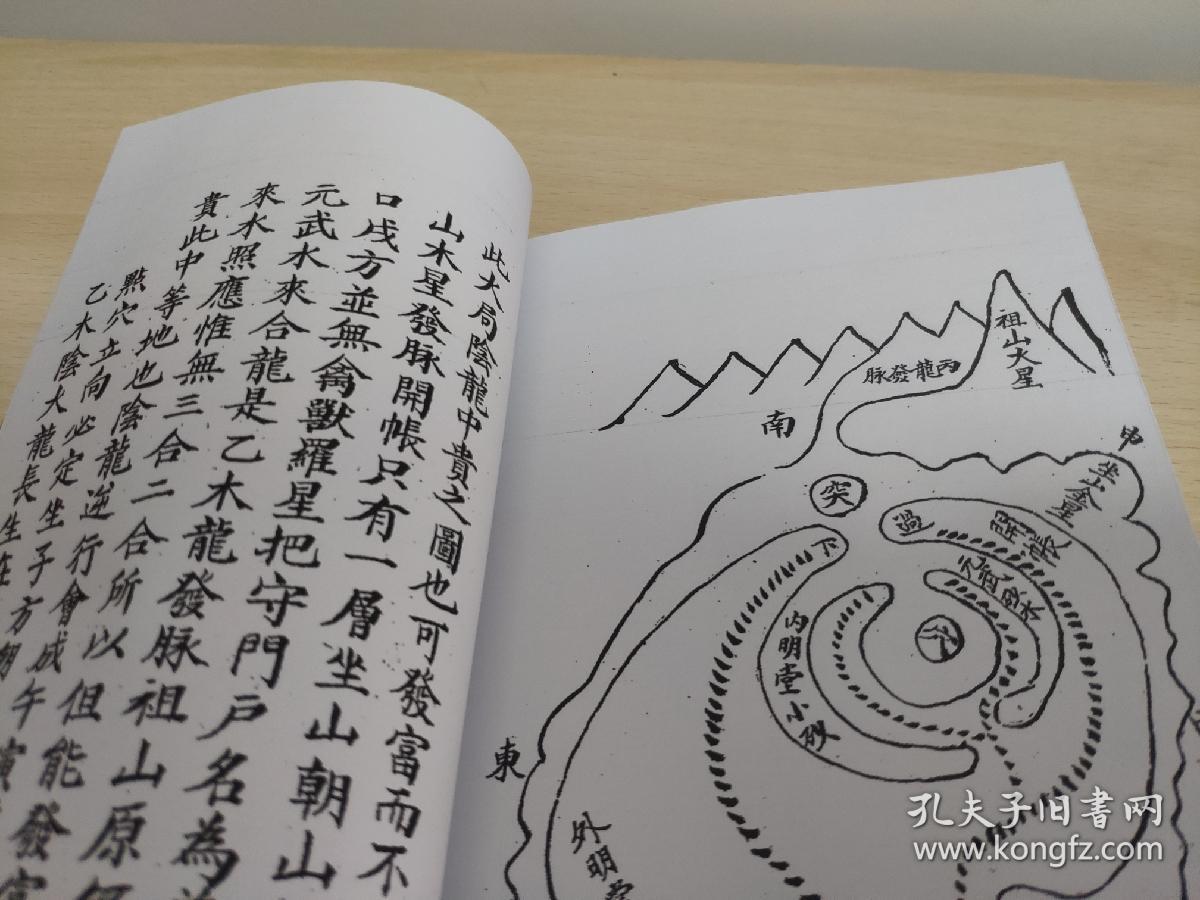 此火局陰龍中貴之圖也可發富而不
山木星發脉開帳只有一層坐山朝山
口戌方並無禽獸羅星把守門戶名為
元武水來合龍是乙木龍發脉祖山原
來水照應惟無三合二合所以但能發富
貴此中等地也陰龍逆行會成午寅
點穴立向必定坐子
乙木陰火龍長生在
方朝
祖山火星
丙龍發脉
南
申
坐山金星
突
過
下
元武界水
穴
內明堂小砂
東
外明堂
孔夫子旧书网
www.kongfz.com